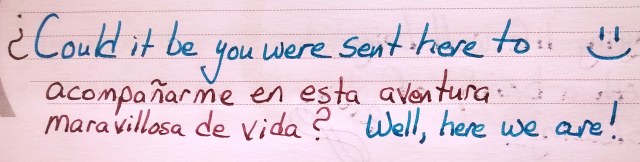 ¿Could it be you were sent here to
acompañarme en esta aventura
maravillosa de vida? Well, here we are!